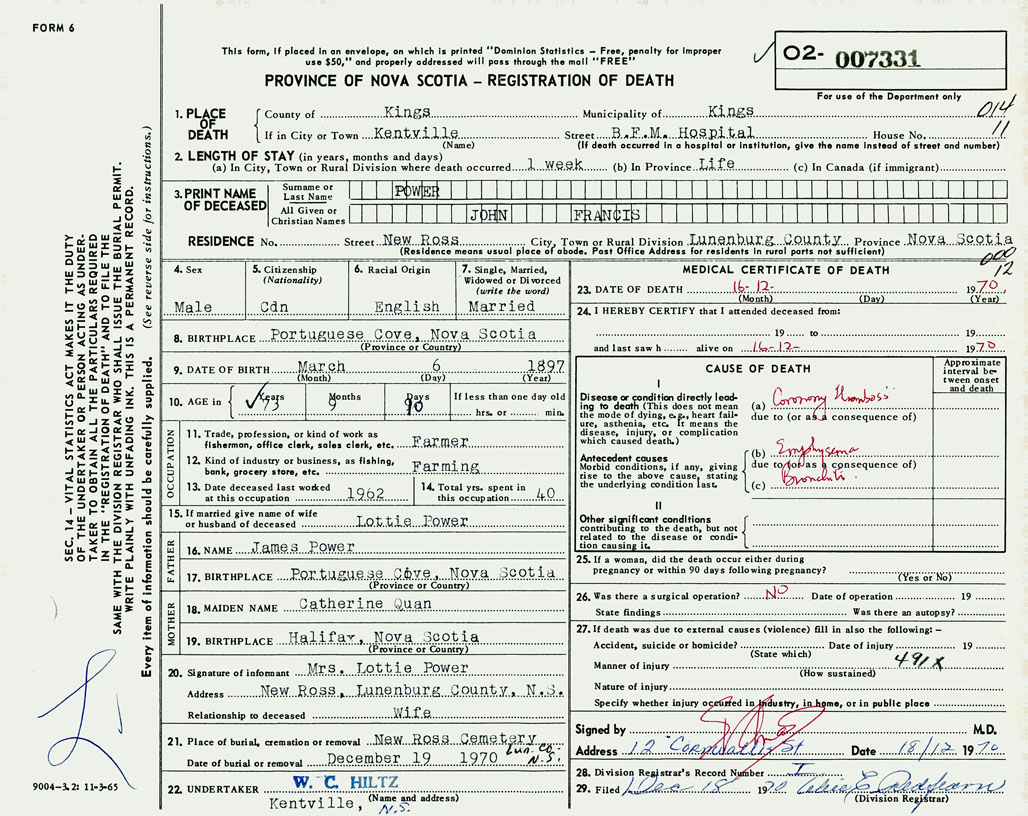 FORM 6
This form, if placed in an envelope, on which is printed "Dominion Statistics – Free, penalty for improper
use $50," and properly addressed will pass through the mail "FREE"
PROVINCE OF NOVA SCOTIA – REGISTRATION OF DEATH
O2- 007331
For use of the Department only
014
11
1. PLACE OF DEATH
County of Kings Municipality of Kings
If in City or Town Kentville Street B.F.M. Hospital House No.
(Name) (If death occurred in a hospital or institution, give the name instead of street and number)
2. LENGTH OF STAY (in years, months and days)
(a) In City, Town or Rural Division where death occurred 1 week (b) In Province Life (c) In Canada (if immigrant)
3. PRINT NAME OF DECEASED
Surname or Last Name POWER
All Given or Christian Names JOHN FRANCIS
RESIDENCE No. Street New Ross City, Town or Rural Division Lunenburg County Province Nova Scotia
(Residence means usual place of abode. Post Office Address for residents in rural parts not sufficient)
000
12
4. Sex
Male
5. Citizenship
(Nationality)
Cdn
6. Racial Origin
English
7. Single, Married,
Widowed or Divorced
(write the word)
Married
8. BIRTHPLACE Portuguese Cove, Nova Scotia
(Province or Country)
9. DATE OF BIRTH March 6 1897
(Month) (Day) (Year)
10. AGE in Years 73 Months 9 Days 10
If less than one day old
hrs. or min.
OCCUPATION
11. Trade, profession, or kind of work as
fisherman, office clerk, sales clerk, etc. Farmer
12. Kind of industry or business, as fishing,
bank, grocery store, etc. Farming
13. Date deceased last worked
at this occupation 1962
14. Total yrs. spent in
this occupation 40
15. If married give name of wife
or husband of deceased Lottie Power
FATHER
16. NAME James Power
17. BIRTHPLACE Portuguese Cove, Nova Scotia
(Province or Country)
MOTHER
18. MAIDEN NAME Catherine Quan
19. BIRTHPLACE Halifax, Nova Scotia
(Province or Country)
20. Signature of informant Mrs. Lottie Power
Address New Ross, Lunenburg County, N.S.
Relationship to deceased Wife
21. Place of burial, cremation or removal New Ross Cemetery
Lun. Co. N.S.
Date of burial or removal December 19 1970
22. UNDERTAKER W. C. HILTZ
(Name and address)
Kentville, N.S.
MEDICAL CERTIFICATE OF DEATH
23. DATE OF DEATH 16-12- 1970
(Month) (Day) (Year)
24. I HEREBY CERTIFY that I attended deceased from:
19 to 19
and last saw h alive on 16-12- 1970
CAUSE OF DEATH
Approximate
interval be-
tween onset
and death
I
Disease or condition directly lead-
ing to death (This does not mean
the mode of dying, e.g., heart fail-
ure, asthenia, etc. It means the
disease, injury, or complication
which caused death.)
(a) Coronary thrombosis
due to (or as a consequence of)
Antecedent causes
Morbid conditions, if any, giving
rise to the above cause, stating
the underlying condition last.
(b) Emphysema
due to (or as a consequence of)
(c) Bronchitis
II
Other significant conditions
contributing to the death, but not
related to the disease or condi-
tion causing it.
25. If a woman, did the death occur either during
pregnancy or within 90 days following pregnancy?
(Yes or No)
26. Was there a surgical operation? NO Date of operation 19
State findings Was there an autopsy?
27. If death was due to external causes (violence) fill in also the following: –
Accident, suicide or homicide? Date of injury 19
(State which)
491X
Manner of injury
(How sustained)
Nature of injury
Specify whether injury occurred in industry, in home, or in public place
Signed by M.D.
Address 12 Cornwallis St Date 18/12 1970
28. Division Registrar's Record Number
29. Filed Dec 18 1970
(Division Registrar)
SEC. 14 – VITAL STATISTICS ACT MAKES IT THE DUTY
OF THE UNDERTAKER OR PERSON ACTING AS UNDER-
TAKER TO OBTAIN ALL THE PARTICULARS REQUIRED
IN THE "REGISTRATION OF DEATH" AND TO FILE THE
SAME WITH THE DIVISION REGISTRAR WHO SHALL ISSUE THE BURIAL PERMIT.
WRITE PLAINLY WITH UNFADING INK. THIS IS A PERMANENT RECORD.
Every item of information should be carefully supplied. (See reverse side for instructions.)
9004-3.2: 11-3-65